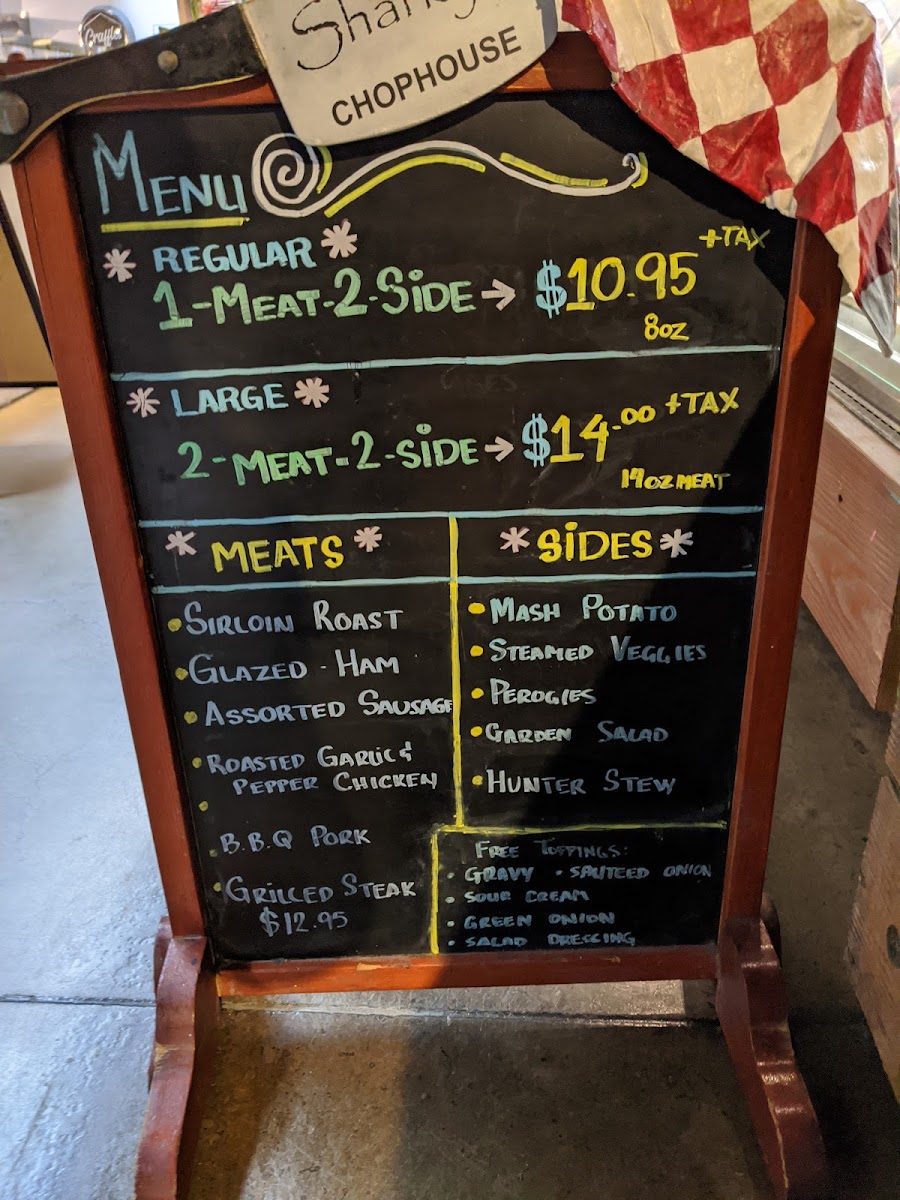 CHOPHOUSE
MENU
* REGULAR *
+TAX
1-MEAT-2-SIDE → $10.95
8oz
* LARGE *
2-MEAT-2-SIDE → $14.00 +TAX
14oz MEAT
* MEATS *
• SIRLOIN ROAST
• GLAZED - HAM
• ASSORTED SAUSAGE
• ROASTED GARLIC &
PEPPER CHICKEN
•
• B.B.Q PORK
• GRILLED STEAK
$12.95
* SIDES *
• MASH POTATO
• STEAMED VEGGIES
• PEROGIES
• GARDEN SALAD
• HUNTER STEW
FREE TOPPINGS:
• GRAVY • SAUTEED ONION
• SOUR CREAM
• GREEN ONION
• SALAD DRESSING